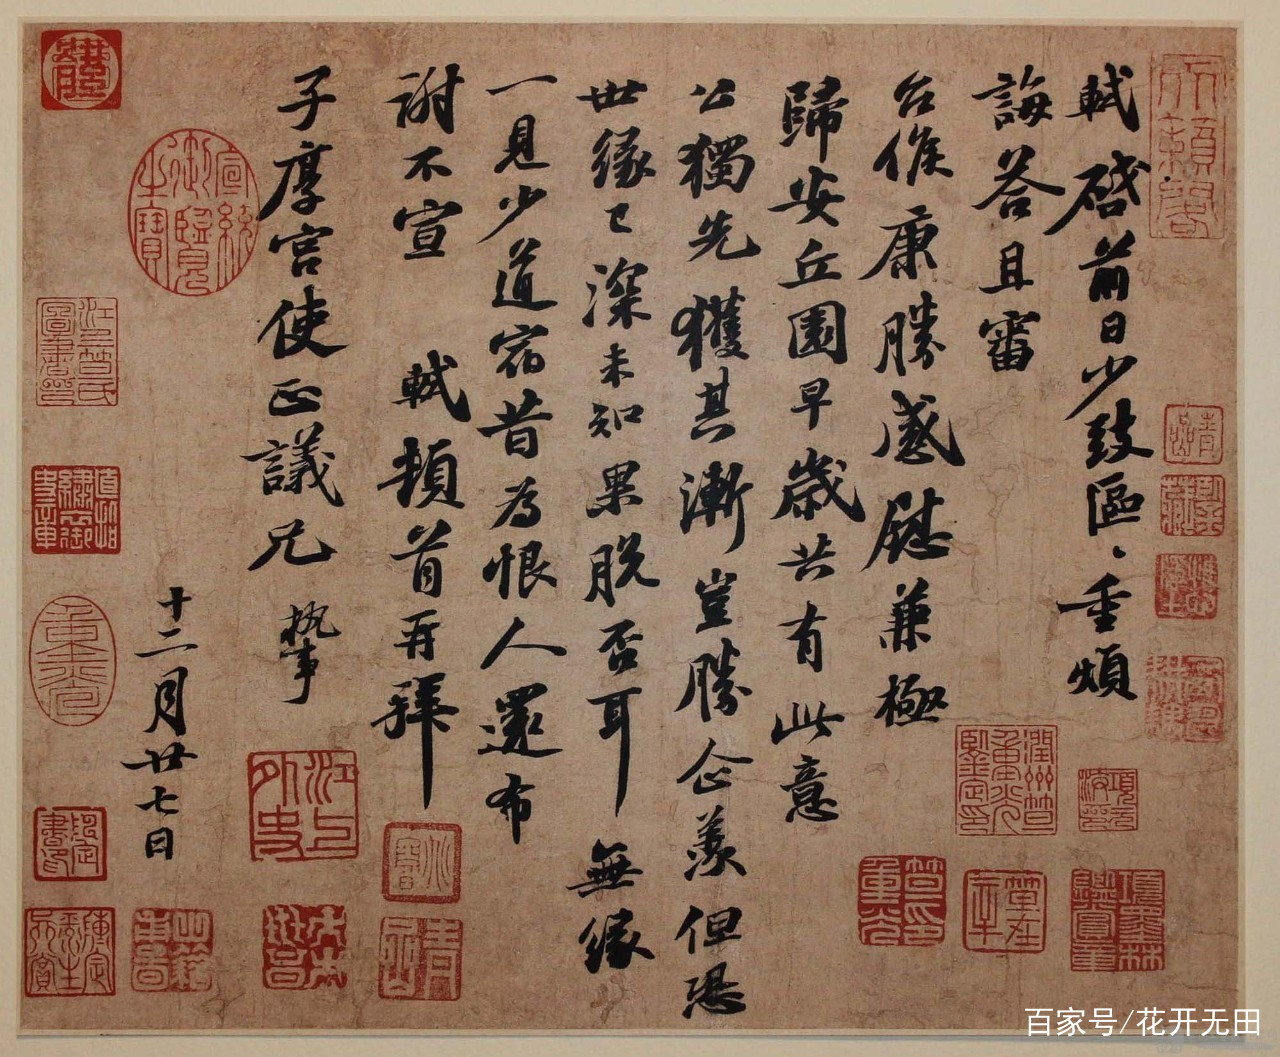 軾啓前日少致區、重煩
誨荅且審
台候康勝感慰兼極
歸安丘園早歲共有此意
公獨先獲其漸豈勝企羨但恐
世緣已深未知果脫否耳無緣
一見少道宿昔為恨人還布
謝不宣 軾頓首再拜
子厚宮使正議兄 執事
十二月廿七日
宣統御覽之寶
江上外史
笪重光印
項墨林鑑賞章
百家号/花开无田